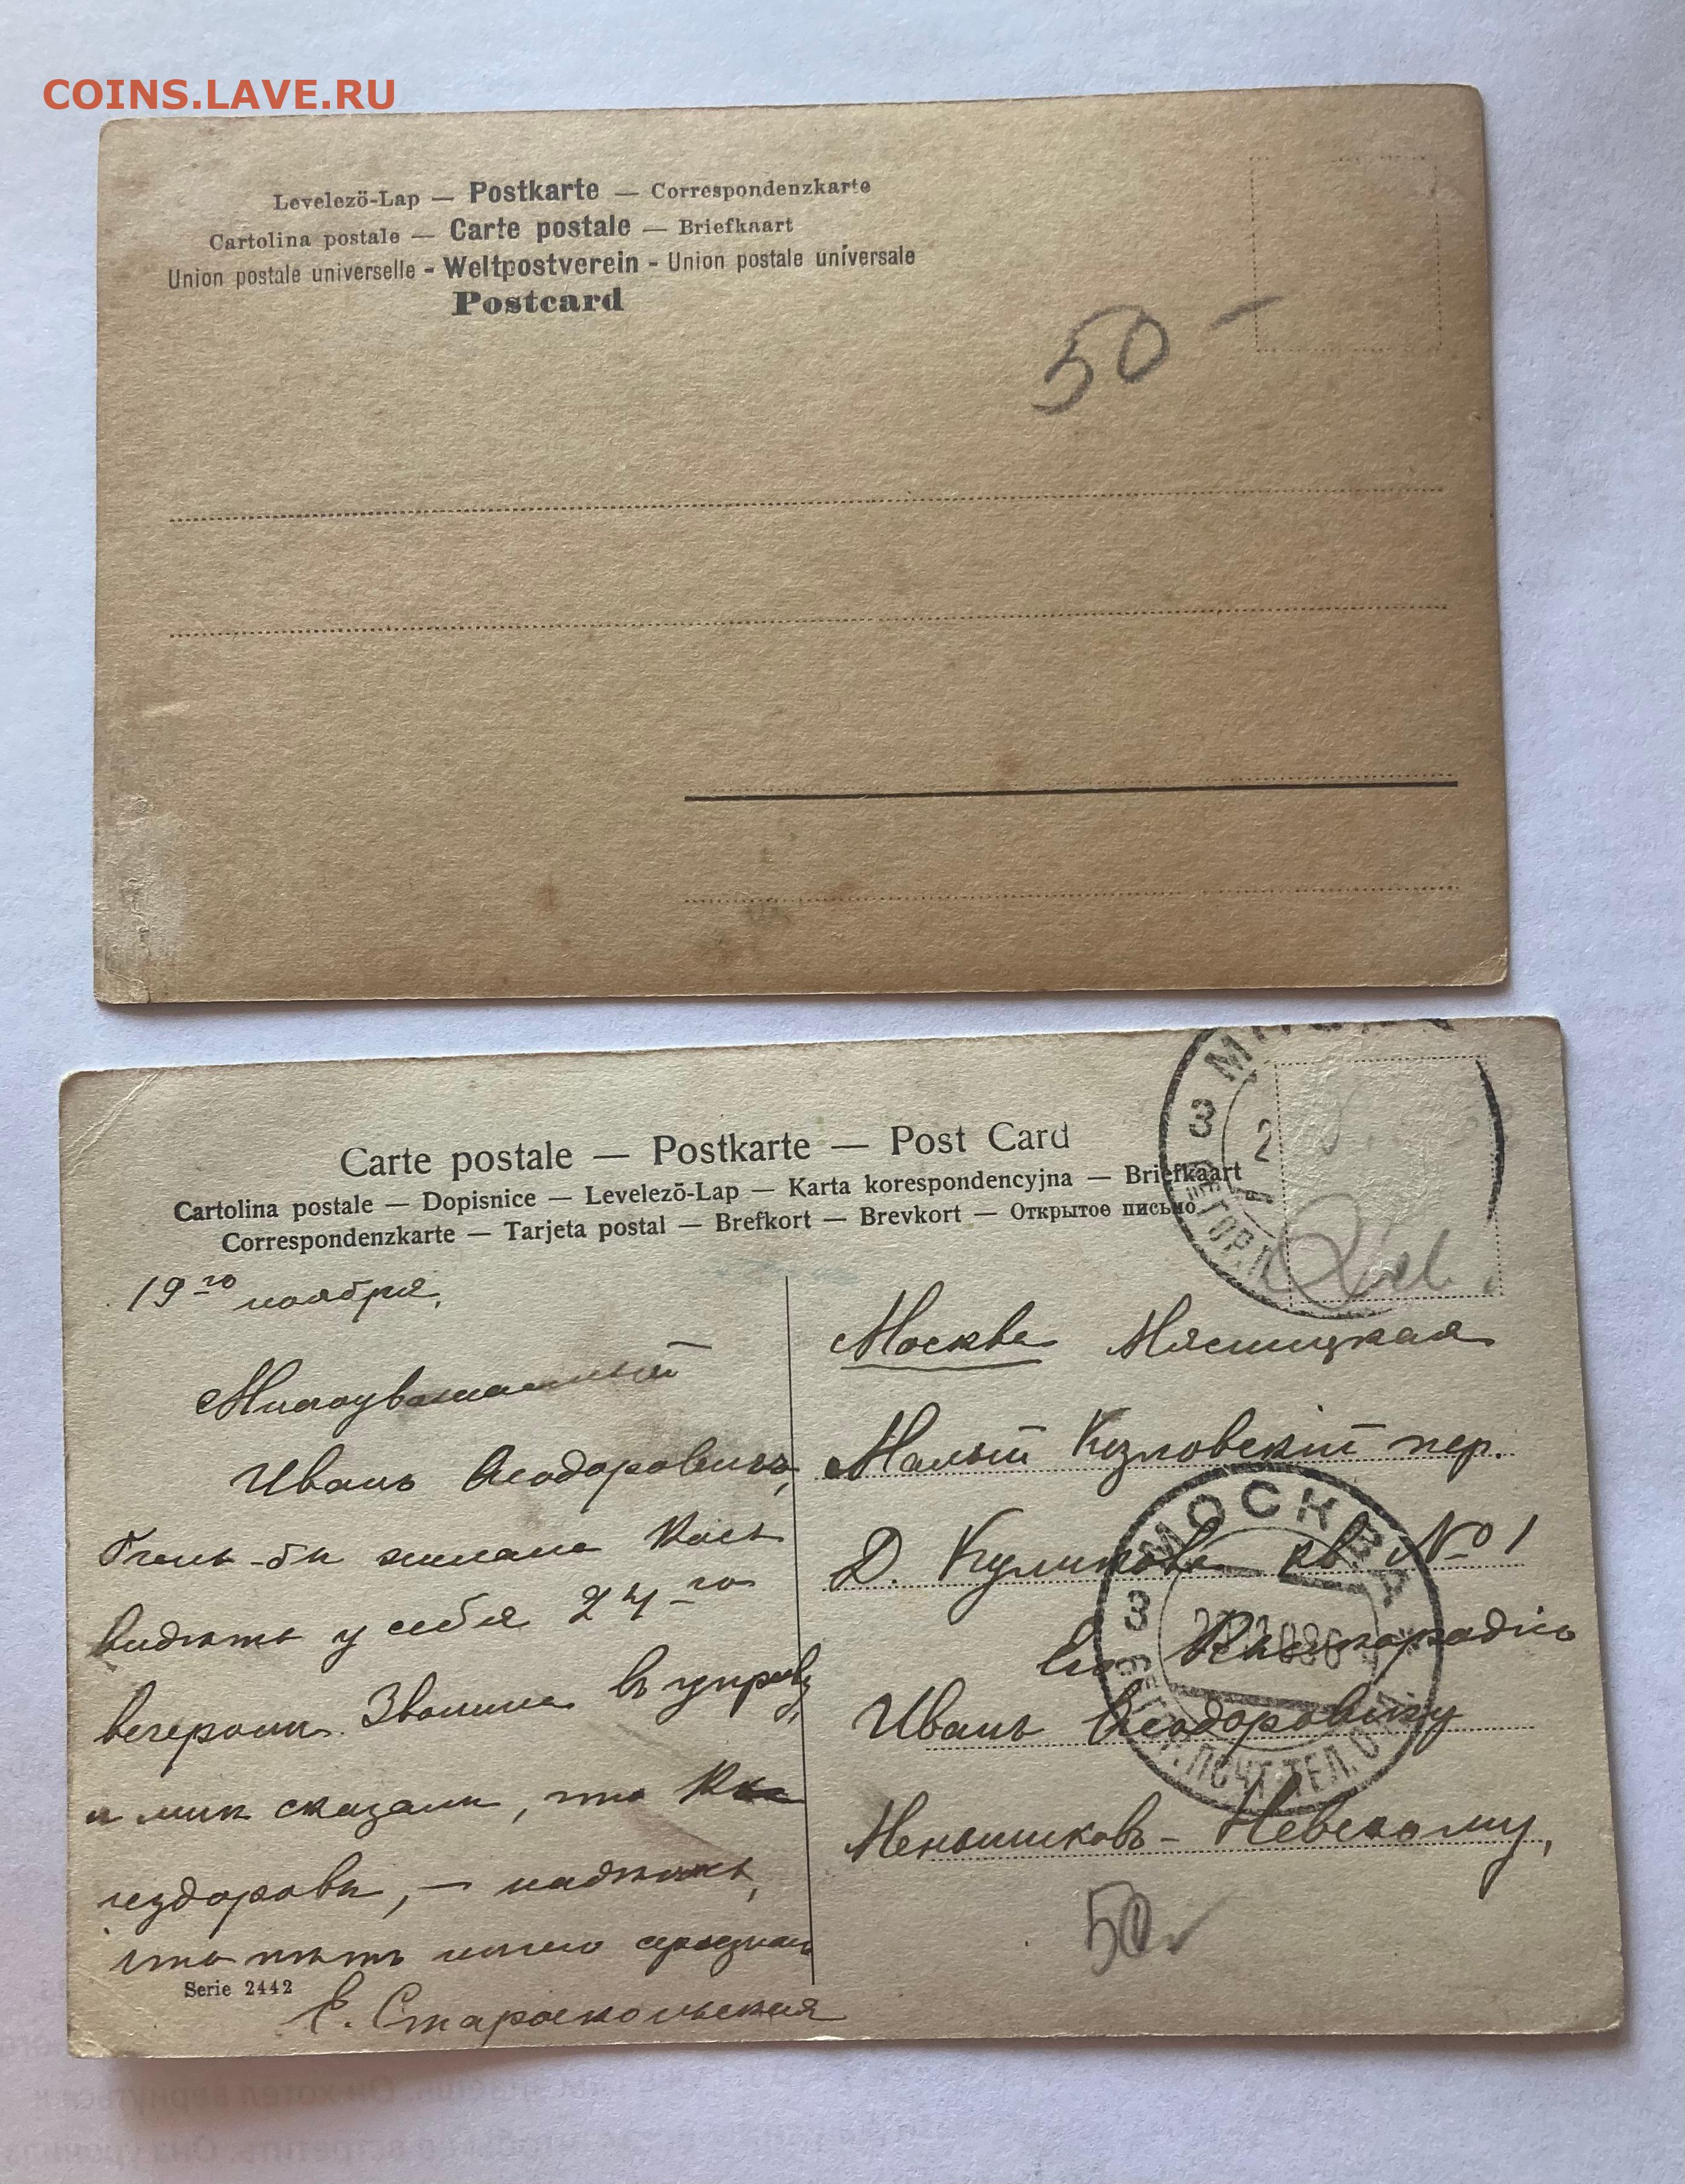 COINS.LAVE.RU
Levelező-Lap — Postkarte — Correspondenzkarte
Cartolina postale — Carte postale — Briefkaart
Union postale universelle - Weltpostverein - Union postale universale
Postcard
50 —
Carte postale — Postkarte — Post Card
Cartolina postale — Dopisnice — Levelező-Lap — Karta korespondencyjna — Briefkaart
Correspondenzkarte — Tarjeta postal — Brefkort — Brevkort — Открытое письмо
3
2
19го ноября,
Многоуважаемый
Иванъ Ѳеодоровичъ,
бы желала Васъ
видѣть у себя 24го
вечеромъ. Звонила въ управу,
и мнѣ сказали, что Вы
нездоровы, — надѣюсь,
что нѣтъ ничего серьезнаго
Serie 2442
Е. Старокольская
Москва Мясницкая
Малый Козловскій пер.
Д. Куликова кв. № 1
Его Высокородію
Ивану Ѳеодоровичу
Меньшиковъ-Невскому,
МОСКВА
3
ПОЧТ.ТЕЛ.
50